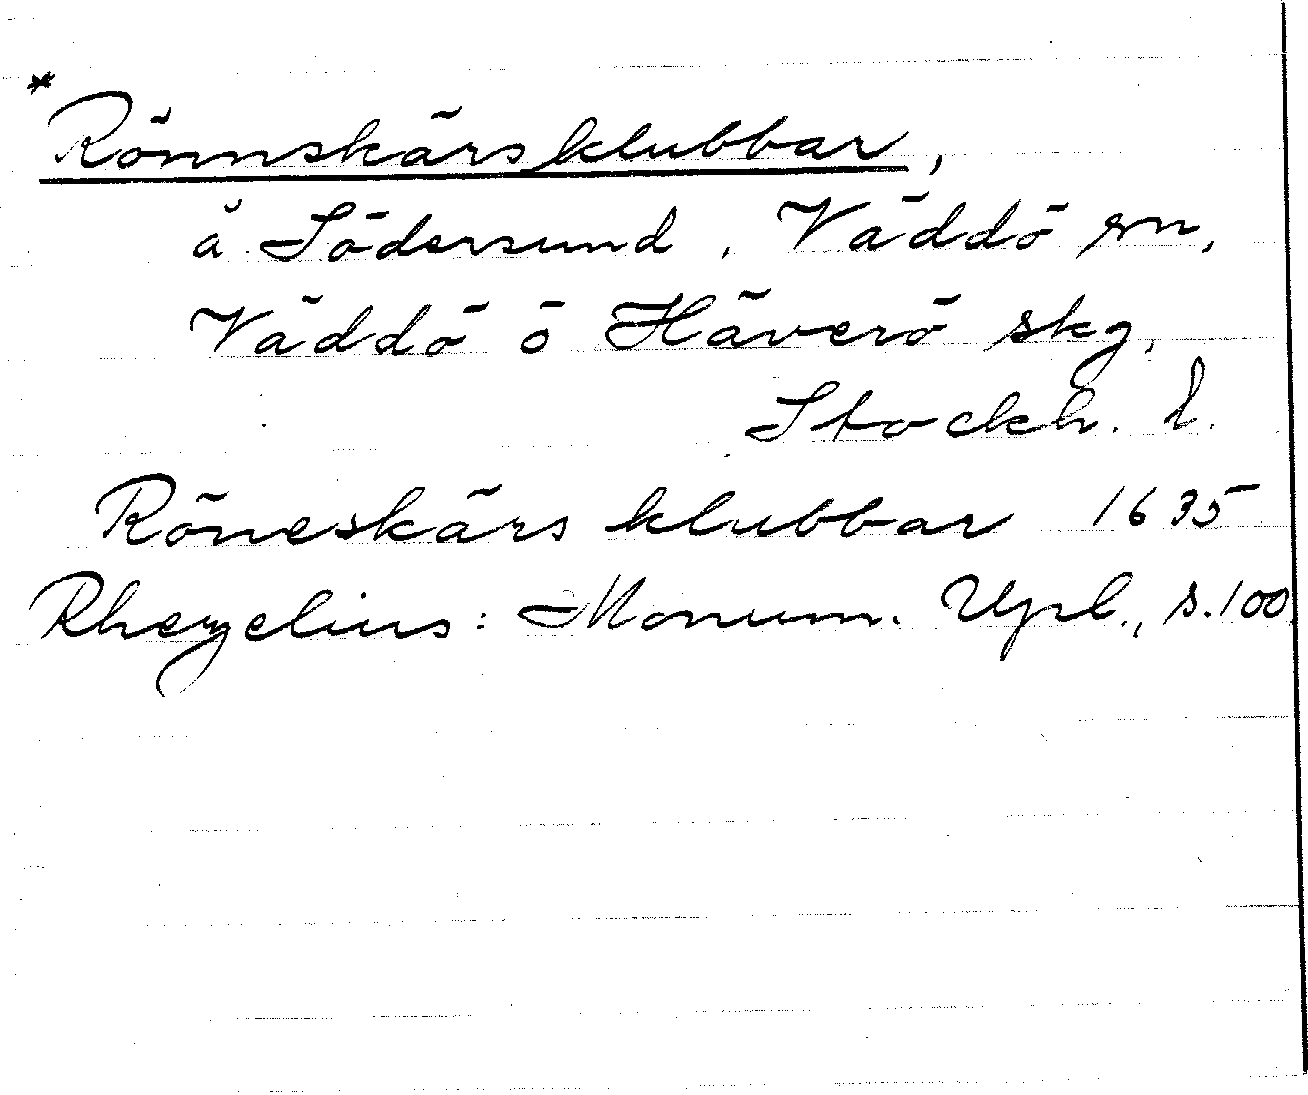 *
Rönnskärsklubbar,
å Södersund, Väddö sn,
Väddö o Häverö skg,
Stockh. l.
Röneskärs klubbar 1635
Rhezelius: Monum. Upl., s. 100